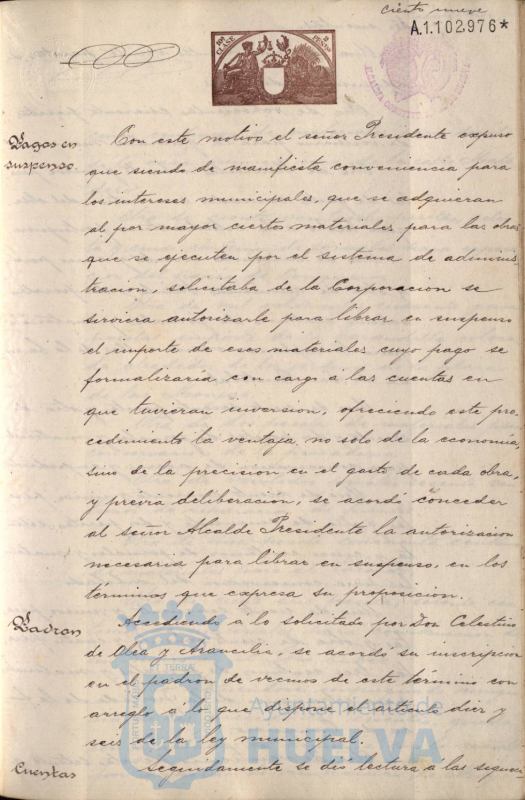 ciento nueve
A.1.102,976*
10ª CLASE
PENS
ALCALDIA
Pagos en
suspenso.
Con este motivo el señor Presidente expuso
que siendo de manifiesta conveniencia para
los intereses municipales, que se adquieran
al por mayor ciertos materiales para las obras
que se ejecuten por el sistema de adminis-
tracion, solicitaba de la Corporacion se
sirviera autorizarle para librar en suspenso
el importe de esos materiales cuyo pago se
formalizaria con cargo á las cuentas en
que tuvieran inversion, ofreciendo este pro-
cedimiento la ventaja, no solo de la economía,
sino de la precision en el gasto de cada obra,
y prévia deliberacion, se acordó conceder
al señor Alcalde Presidente la autorizaion
necesaria para librar en suspenso, en los
términos que expresa su proposicion.
Padron
Accediendo a lo solicitado por Don Celestino
de Olea y Arancilia, se acordó su inscripcion
en el padron de vecinos de este término con
arreglo a lo que dispone el articulo diez y
seis de la ley municipal.
Cuentas
Seguidamente se dió lectura a las siguien
Ayuntamiento de
HUELVA